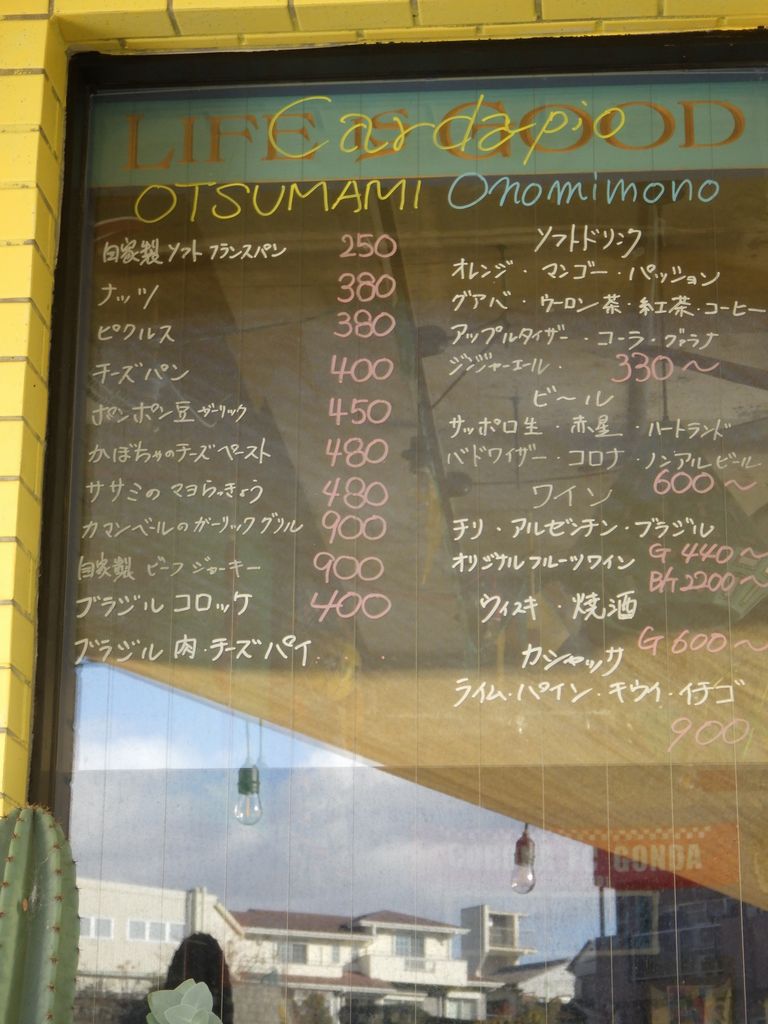 LIFE IS GOOD
Cardapio
OTSUMAMI
自家製 ソフト フランスパン 250
ナッツ 380
ピクルス 380
チーズパン 400
ポンポン豆 ガーリック 450
かぼちゃのチーズペースト 480
ササミのマヨらっきょう 480
カマンベールのガーリックグリル 900
自家製 ビーフジャーキー 900
ブラジルコロッケ 400
ブラジル肉・チーズパイ
Onomimono
ソフトドリンク
オレンジ・マンゴー・パッション
グアバ・ウーロン茶・紅茶・コーヒー
アップルタイザー・コーラ・ガラナ
ジンジャーエール・ 330〜
ビール
サッポロ生・赤星・ハートランド
バドワイザー・コロナ・ノンアルビール
600〜
ワイン
チリ・アルゼンチン・ブラジル
オリジナルフルーツワイン G 440〜
B/t 2200〜
ウィスキ・焼酒
G 600〜
カシャッサ
ライム・パイン・キウイ・イチゴ
900
GONDA